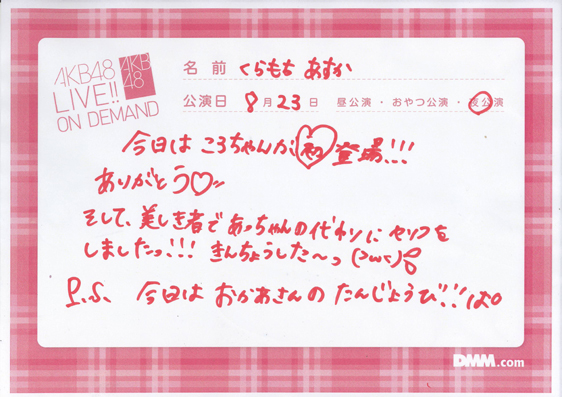 AKB48
LIVE!!
ON DEMAND
AKB
48
名前 くらもち あすか
公演日 8月23日 昼公演・おやつ公演・夜公演
今日は ころちゃんが 初 登場!!!
ありがとう♡〃
そして、美しき者で あっちゃんの代わりに セリフを
しましたっ!!! きんちょうした〜っ (>ω<)
P.S. 今日は おかあさんの たんじょうび!! ぱ
DMM.com